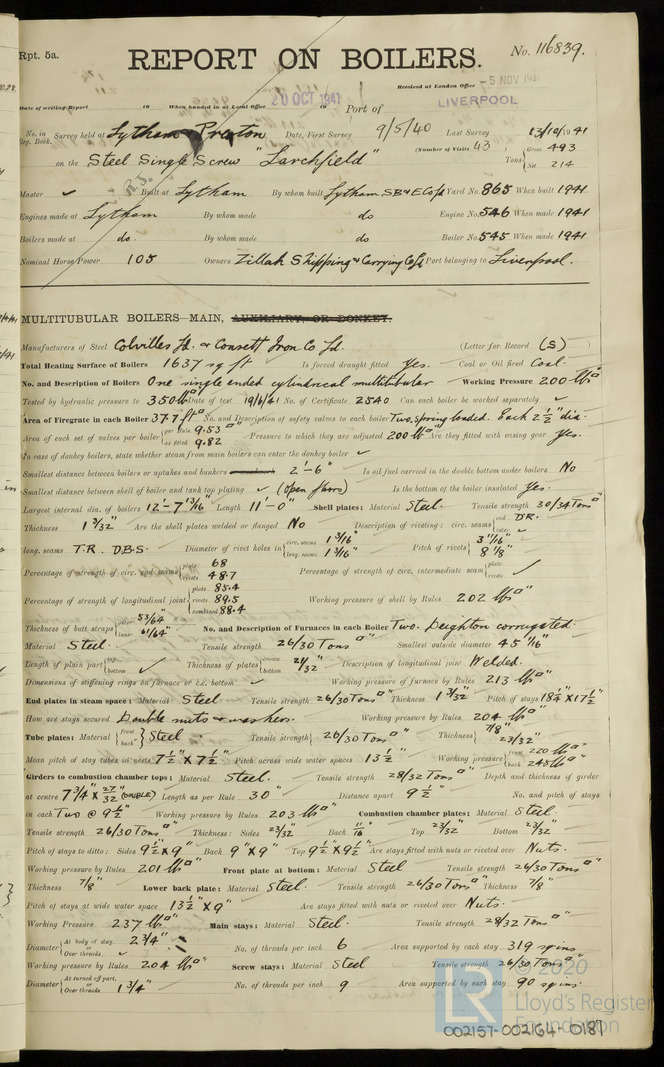 Rpt. 5a.
REPORT ON BOILERS.
No. 116839.
Received at London Office
5 NOV 1941
Date of writing Report 19 When handed in at Local Office 20 OCT 1941 19 Port of LIVERPOOL
No. in Reg. Book. Survey held at Lytham & Preston Date, First Survey 9/5/40 Last Survey 13/10/1941
(Number of Visits 43)
on the Steel Single Screw "Larchfield" Tons { Gross 493 Net 214
Master ✓ Built at Lytham By whom built Lytham S.B. & E Co Ld Yard No. 865 When built 1941
Engines made at Lytham By whom made do Engine No. 546 When made 1941
Boilers made at do. By whom made do Boiler No. 545 When made 1941
Nominal Horse Power 105 Owners Zillah Shipping & Carrying Co Ld Port belonging to Liverpool.
MULTITUBULAR BOILERS—MAIN, AUXILIARY, OR DONKEY.
Manufacturers of Steel Colvilles Ld. & Consett Iron Co Ld. (Letter for Record (S) )
Total Heating Surface of Boilers 1637 sq ft Is forced draught fitted Yes. Coal or Oil fired Coal.
No. and Description of Boilers One single ended cylindrical multitubular Working Pressure 200 lbs □"
Tested by hydraulic pressure to 350 lbs □" Date of test 19/6/41 No. of Certificate 2540 Can each boiler be worked separately ✓
Area of Firegrate in each Boiler 37.7 ft □ No. and Description of safety valves to each boiler Two, spring loaded. Each 2½" dia.
Area of each set of valves per boiler { per Rule 9.53 □" as fitted 9.82 Pressure to which they are adjusted 200 lbs □" Are they fitted with easing gear Yes.
In case of donkey boilers, state whether steam from main boilers can enter the donkey boiler ✓
Smallest distance between boilers or uptakes and bunkers 2'-6" Is oil fuel carried in the double bottom under boilers No
Smallest distance between shell of boiler and tank top plating ✓ (Open floors) Is the bottom of the boiler insulated Yes.
Largest internal dia. of boilers 12'-7 13/16" Length 11'-0" Shell plates: Material Steel. Tensile strength 30/34 Tons □"
Thickness 1 3/32" Are the shell plates welded or flanged No Description of riveting: circ. seams { end D.R. inter. ✓
long. seams T.R. D.B.S. Diameter of rivet holes in { circ. seams 1 3/16" long. seams 1 3/16" Pitch of rivets { 3 11/16" 8 1/8"
Percentage of strength of circ. end seams { plate 68 rivets 48.7 Percentage of strength of circ. intermediate seam { plate rivets ✓
Percentage of strength of longitudinal joint { plate 85.4 rivets 89.5 combined 88.4 Working pressure of shell by Rules 202 lbs □"
Thickness of butt straps { outer 53/64" inner 61/64" No. and Description of Furnaces in each Boiler Two. Deighton corrugated.
Material Steel. Tensile strength 26/30 Tons □" Smallest outside diameter 45 1/16"
Length of plain part { top bottom ✓ Thickness of plates { crown bottom 21/32" Description of longitudinal joint Welded.
Dimensions of stiffening rings on furnace or c.c. bottom ✓ Working pressure of furnace by Rules 213 lbs □"
End plates in steam space: Material Steel. Tensile strength 26/30 Tons □" Thickness 1 3/32" Pitch of stays 18¼ × 17½"
How are stays secured Double nuts & washers. Working pressure by Rules 204 lbs □"
Tube plates: Material { front back } Steel. Tensile strength { 26/30 Tons □" Thickness { 7/8" 23/32"
Mean pitch of stay tubes in nests 7½" × 7½" Pitch across wide water spaces 13½" Working pressure { front 220 lbs □" back 245 lbs □"
Girders to combustion chamber tops: Material Steel. Tensile strength 28/32 Tons □" Depth and thickness of girder
at centre 7¾" × 27/32" (DOUBLE) Length as per Rule 30" Distance apart 9½" No. and pitch of stays
in each Two @ 9½" Working pressure by Rules 203 lbs □" Combustion chamber plates: Material Steel.
Tensile strength 26/30 Tons □" Thickness: Sides 23/32" Back 11/16" Top 23/32" Bottom 23/32"
Pitch of stays to ditto: Sides 9½" × 9" Back 9" × 9" Top 9½" × 9½" Are stays fitted with nuts or riveted over Nuts.
Working pressure by Rules 201 lbs □" Front plate at bottom: Material Steel Tensile strength 26/30 Tons □"
Thickness 7/8" Lower back plate: Material Steel. Tensile strength 26/30 Tons □" Thickness 7/8"
Pitch of stays at wide water space 13½" × 9" Are stays fitted with nuts or riveted over Nuts.
Working Pressure 237 lbs □" Main stays: Material Steel. Tensile strength 28/32 Tons □"
Diameter { At body of stay, 2¾" Over threads No. of threads per inch 6 Area supported by each stay 319 sq ins
Working pressure by Rules 204 lbs □" Screw stays: Material Steel Tensile strength 26/30 Tons □"
Diameter { At turned off part, Over threads 1¾" No. of threads per inch 9 Area supported by each stay 90 sq ins.
© 2020
LR
Lloyd's Register
Foundation
002157-002164-0187